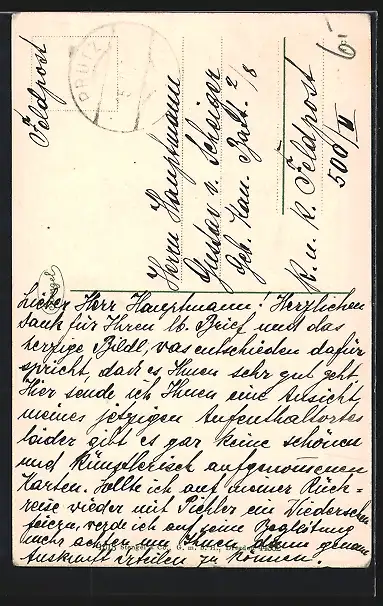 Feldpost
PRUTZ
6
Herrn Hauptmann
Gustav v. Scheiger
Geb. Kan. Batt. 2/8
k. u. k. Feldpost
500/II
Stengel
Lieber Herr Hauptmann! Herzlichen
Dank für Ihren lb. Brief und das
herzige Bildl, was entschieden dafür
spricht, dass es Ihnen sehr gut geht.
Hier sende ich Ihnen eine Ansicht
meines jetzigen Aufenthaltortes
leider gibt es gar keine schönen
und künstlerisch aufgenommenen
Karten. Sollte ich auf meiner Rück-
reise wieder mit Pichler ein Wiedersehen
feiern, werde ich auf seine Begleitung
mehr achten um Ihnen dann genaue
Auskunft erteilen zu können.
Stengel & Co., G. m. b. H., Dresden